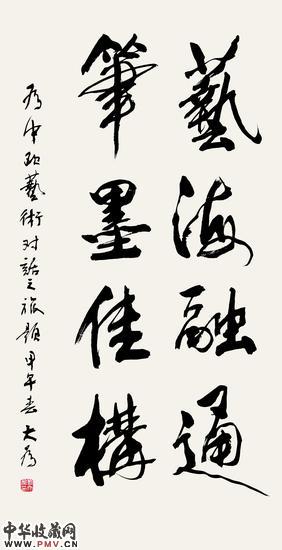 藝海融通
筆墨佳構
为中欧藝術对話之旅题 甲午春 大为
中华收藏网
www.PMV.CN